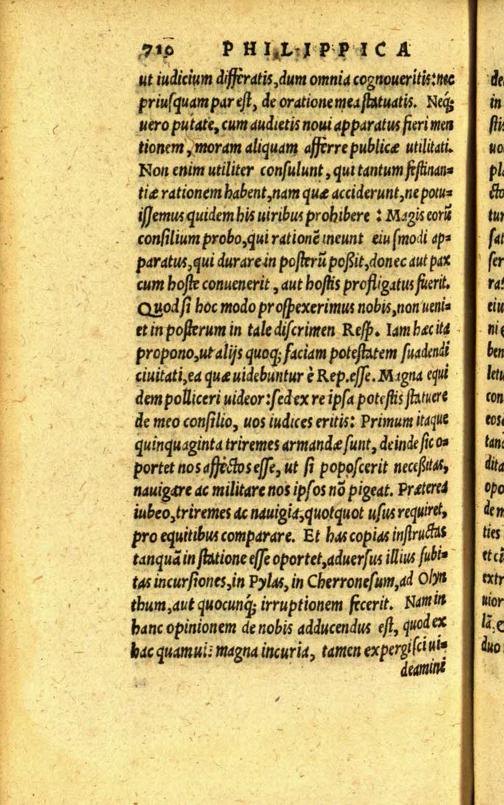 710 PHILIPPICA
ut iudicium differatis, dum omnia cognoueritis: nec
priusquam par est, de oratione mea statuatis. Neq;
uero putate, cum audietis noui apparatus fieri men
tionem, moram aliquam afferre publicæ utilitati.
Non enim utiliter consulunt, qui tantum festinan=
tiæ rationem habent, nam quæ acciderunt, ne potu=
issemus quidem his uiribus prohibere : Magis eorũ
consilium probo, qui rationẽ ineunt eiusmodi ap=
paratus, qui durare in posterũ poßit, donec aut pax
cum hoste conuenerit, aut hostis profligatus fuerit.
Quod si hoc modo prospexerimus nobis, non ueni=
et in posterum in tale discrimen Resp. Iam hæc ita
propono, ut alijs quoq; faciam potestatem suadendi
ciuitati, ea quæ uidebuntur è Rep. esse. Magna equi
dem polliceri uideor: sed ex re ipsa potestis statuere
de meo consilio, uos iudices eritis: Primum itaque
quinquaginta triremes armandæ sunt, deinde sic o=
portet nos affectos esse, ut si poposcerit neceßitas,
nauigare ac militare nos ipsos nõ pigeat. Præterea
iubeo, triremes ac nauigia, quotquot usus requiret,
pro equitibus comparare. Et has copias instructas
tanquã in statione esse oportet, aduersus illius subi=
tas incursiones, in Pylas, in Cherronesum, ad Olyn
thum, aut quocunq; irruptionem fecerit. Nam in
hanc opinionem de nobis adducendus est, quod ex
hac quamuis magna incuria, tamen expergisci ui=
deamini